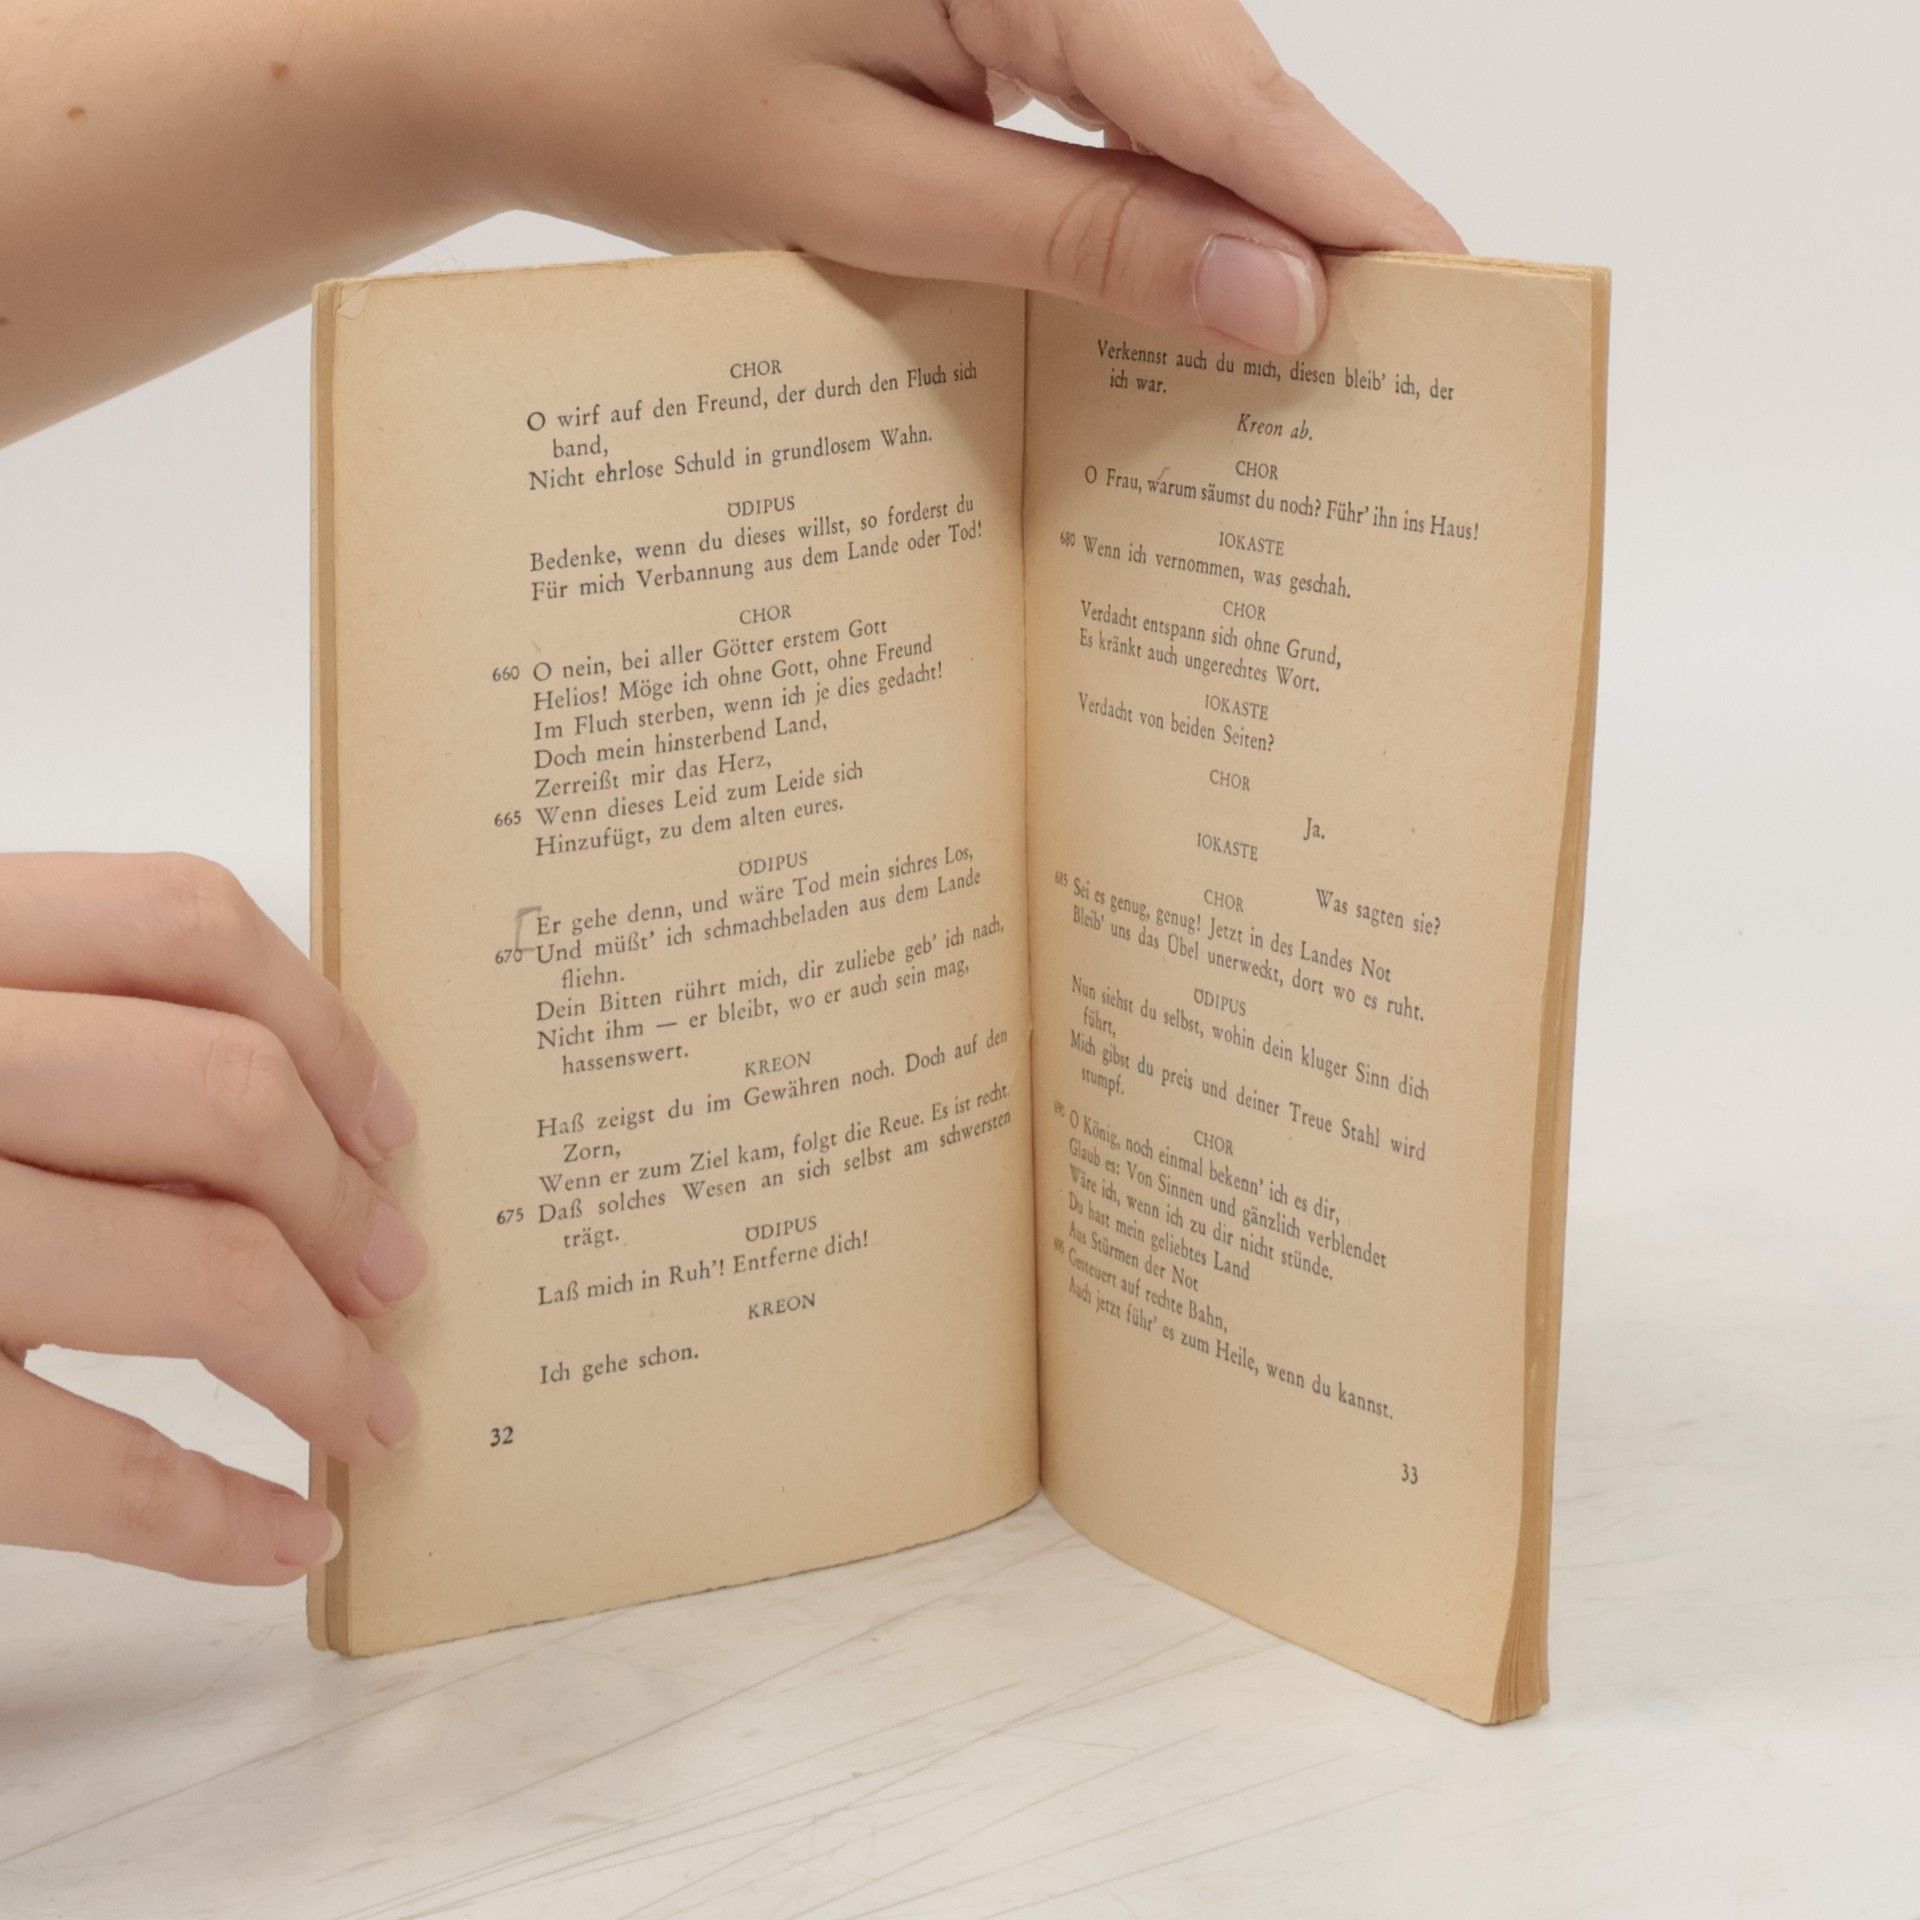 CHOR
O wirf auf den Freund, der durch den Fluch sich
band,
Nicht ehrlose Schuld in grundlosem Wahn.
ÖDIPUS
Bedenke, wenn du dieses willst, so forderst du
Für mich Verbannung aus dem Lande oder Tod!
CHOR
660 O nein, bei aller Götter erstem Gott
Helios! Möge ich ohne Gott, ohne Freund
Im Fluch sterben, wenn ich je dies gedacht!
Doch mein hinsterbend Land,
Zerreißt mir das Herz,
665 Wenn dieses Leid zum Leide sich
Hinzufügt, zu dem alten eures.
ÖDIPUS
Er gehe denn, und wäre Tod mein sichres Los,
670 Und müßt' ich schmachbeladen aus dem Lande
fliehn.
Dein Bitten rührt mich, dir zuliebe geb' ich nach,
Nicht ihm — er bleibt, wo er auch sein mag,
hassenswert.
KREON
Haß zeigst du im Gewähren noch. Doch auf den
Zorn,
Wenn er zum Ziel kam, folgt die Reue. Es ist recht.
675 Daß solches Wesen an sich selbst am schwersten
trägt.
ÖDIPUS
Laß mich in Ruh'! Entferne dich!
KREON
Ich gehe schon.
32
Verkennst auch du mich, diesen bleib' ich, der
ich war.
Kreon ab.
CHOR
O Frau, warum säumst du noch? Führ' ihn ins Haus!
IOKASTE
680 Wenn ich vernommen, was geschah.
CHOR
Verdacht entspann sich ohne Grund,
Es kränkt auch ungerechtes Wort.
IOKASTE
Verdacht von beiden Seiten?
CHOR
Ja.
IOKASTE
Was sagten sie?
CHOR
685 Sei es genug, genug! Jetzt in des Landes Not
Bleib' uns das Übel unerweckt, dort wo es ruht.
ÖDIPUS
Nun siehst du selbst, wohin dein kluger Sinn dich
führt,
Mich gibst du preis und deiner Treue Stahl wird
stumpf.
CHOR
690 O König, noch einmal bekenn' ich es dir,
Glaub es: Von Sinnen und gänzlich verblendet
Wäre ich, wenn ich zu dir nicht stünde.
Du hast mein geliebtes Land
Aus Stürmen der Not
695 Gesteuert auf rechte Bahn,
Auch jetzt führ' es zum Heile, wenn du kannst.
33